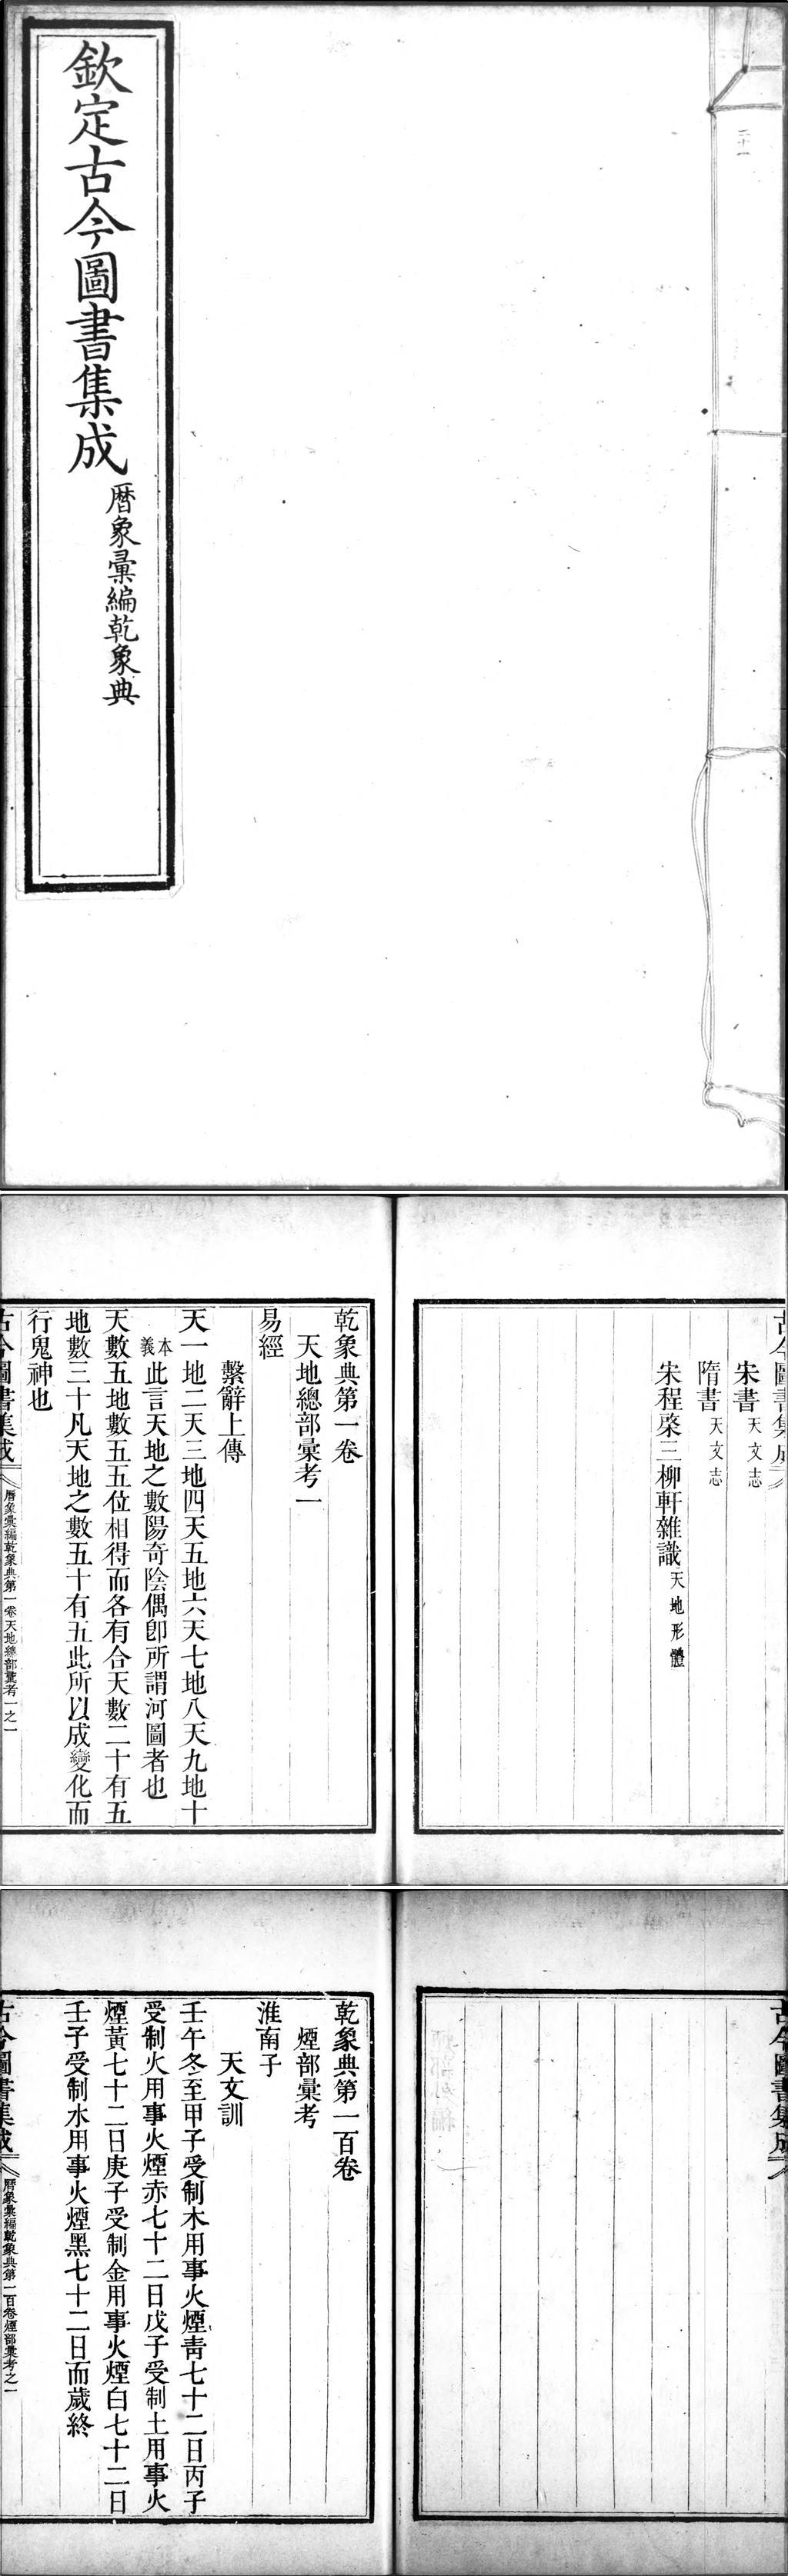 欽定古今圖書集成
曆象彙編乾象典
二十一
古今圖書集成
宋書天文志
隋書天文志
宋程棨三柳軒雜識天地形體
乾象典第一卷
天地總部彙考一
易經
繫辭上傳
天一地二天三地四天五地六天七地八天九地十
本義此言天地之數陽奇陰偶卽所謂河圖者也
天數五地數五五位相得而各有合天數二十有五
地數三十凡天地之數五十有五此所以成變化而
行鬼神也
古今圖書集成
曆象彙編乾象典第一卷天地總部彙考一之一
古今圖書集成
乾象典第一百卷
煙部彙考
淮南子
天文訓
壬午冬至甲子受制木用事火煙青七十二日丙子
受制火用事火煙赤七十二日戊子受制土用事火
煙黃七十二日庚子受制金用事火煙白七十二日
壬子受制水用事火煙黑七十二日而歲終
古今圖書集成
曆象彙編乾象典第一百卷煙部彙考之一